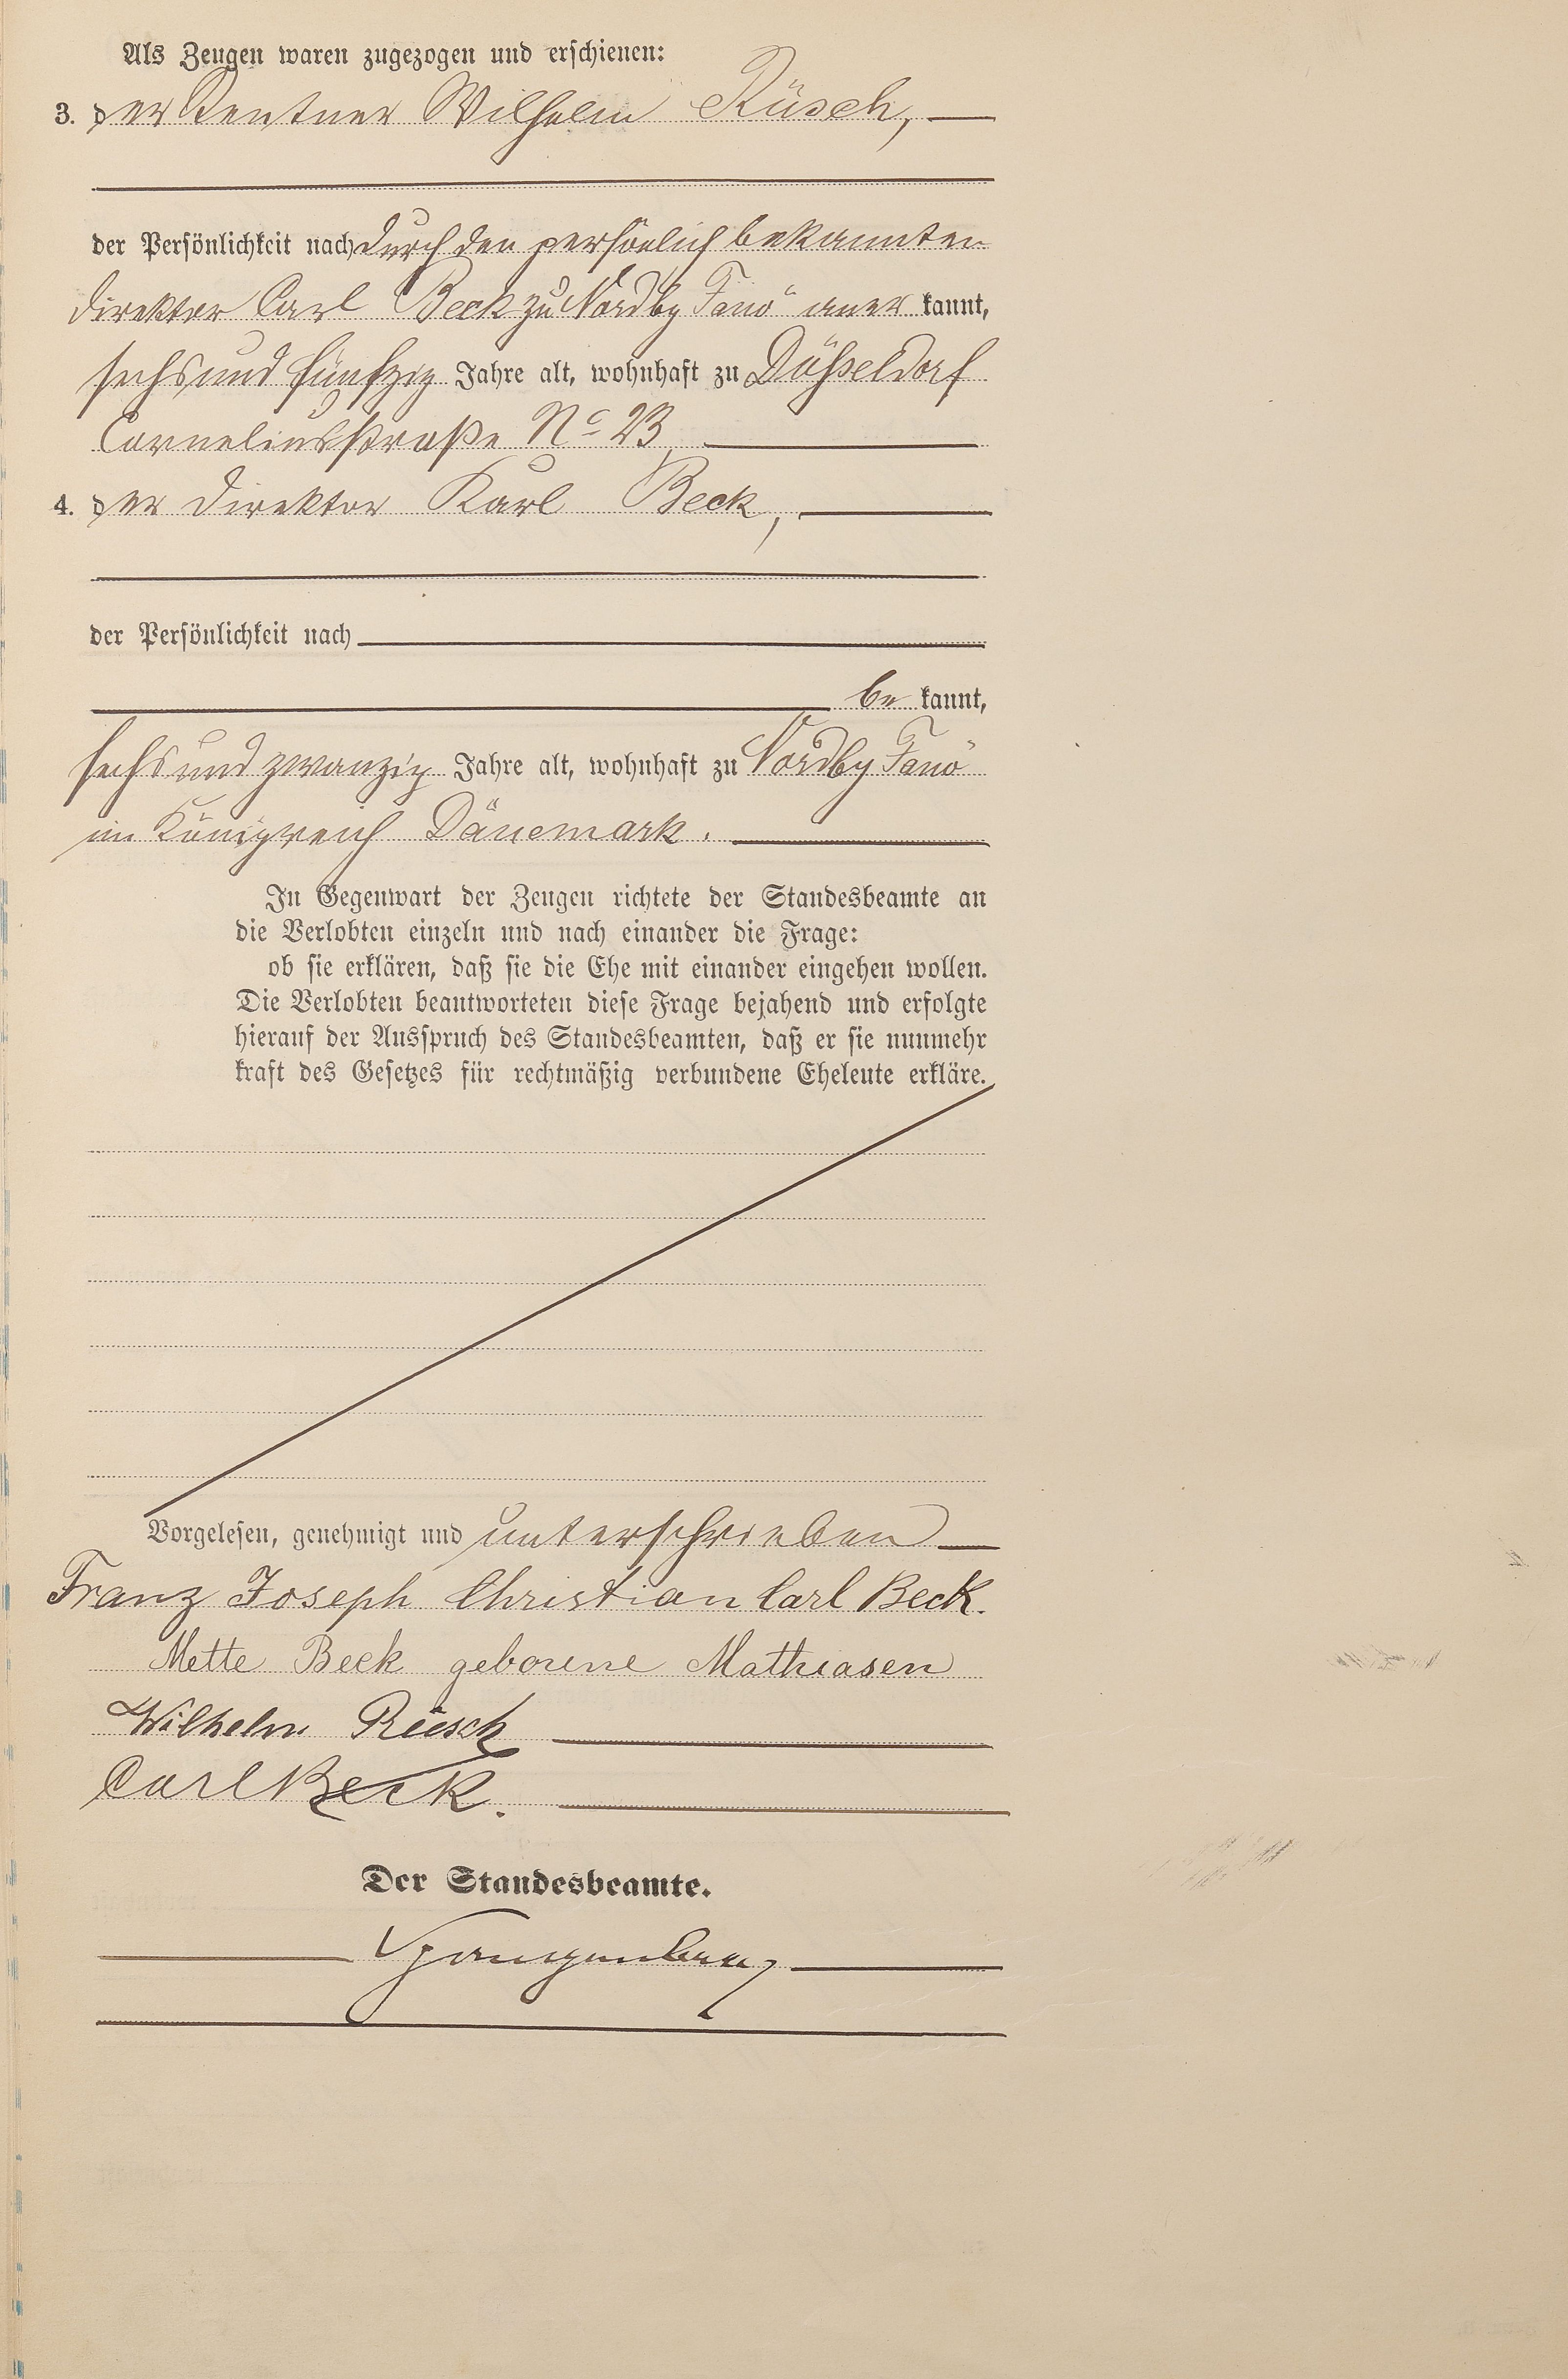 Als Zeugen waren zugezogen und erschienen:
3. der Rentner Wilhelm Rüsch,
der Persönlichkeit nach durch den persönlich bekannten
Direktor Carl Beck zu Nordby Fanö anerkannt,
sechsundfünfzig Jahre alt, wohnhaft zu Düsseldorf
Corneliusstraße No 23
4. der Direktor Karl Beck,
der Persönlichkeit nach
bekannt,
sechsundzwanzig Jahre alt, wohnhaft zu Nordby Fanö
im Königreich Dänemark.
In Gegenwart der Zeugen richtete der Standesbeamte an
die Verlobten einzeln und nach einander die Frage:
ob sie erklären, daß sie die Ehe mit einander eingehen wollen.
Die Verlobten beantworteten diese Frage bejahend und erfolgte
hierauf der Ausspruch des Standesbeamten, daß er sie nunmehr
kraft des Gesetzes für rechtmäßig verbundene Eheleute erkläre.
Vorgelesen, genehmigt und unterschrieben
Franz Joseph Christian Carl Beck.
Mette Beck geborene Mathiasen
Wilhelm Rüsch
Carl Beck.
Der Standesbeamte.